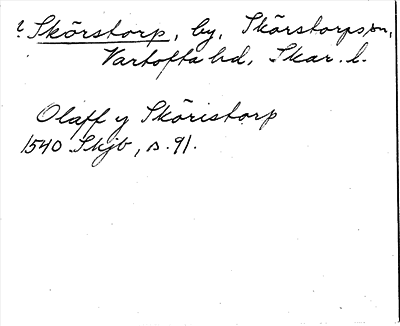 ? Skörstorp, by, Skörstorps sn,
Vartofta hd, Skar. l.
Olaff y Sköristorp
1540 Skjb, s. 91.